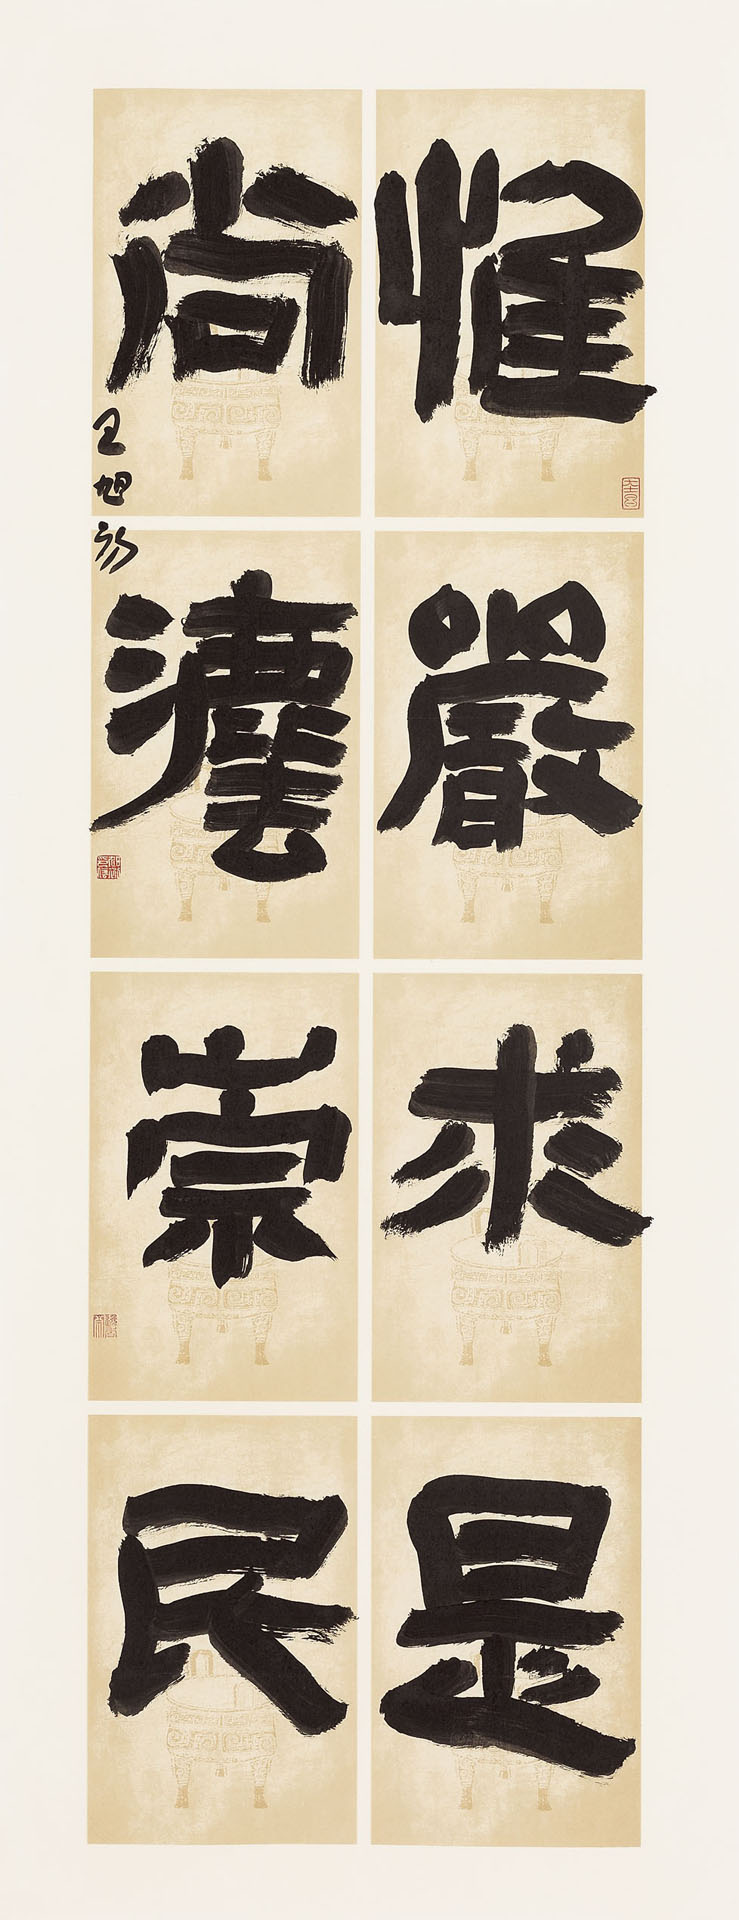 惟嚴求是
尚灋崇民
王旭